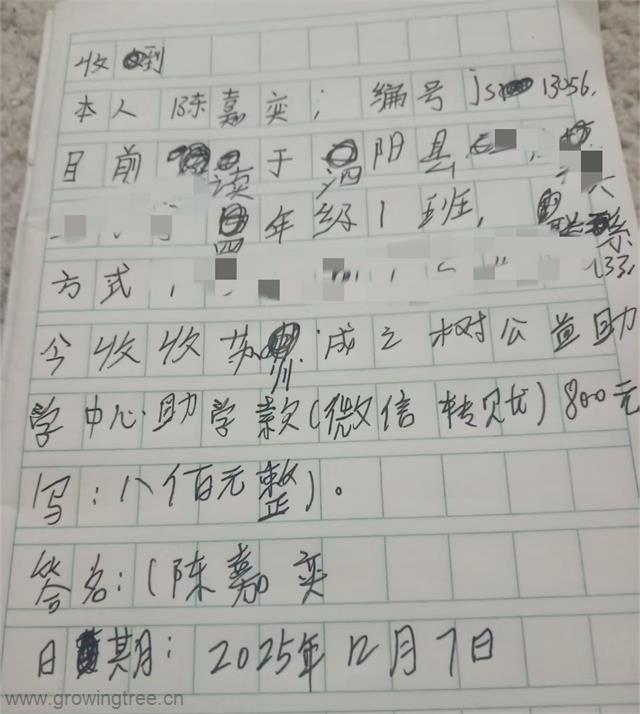 收到
本人陈嘉奕; 编号js 13056.
目前读于泗阳县
四年级1班, 联系
方式
今收收苏州成之树公益助
学中心助学款(微信转账)800元
写:八佰元整)。
签名:(陈嘉奕
日期: 2025年12月7日
www.growingtree.cn